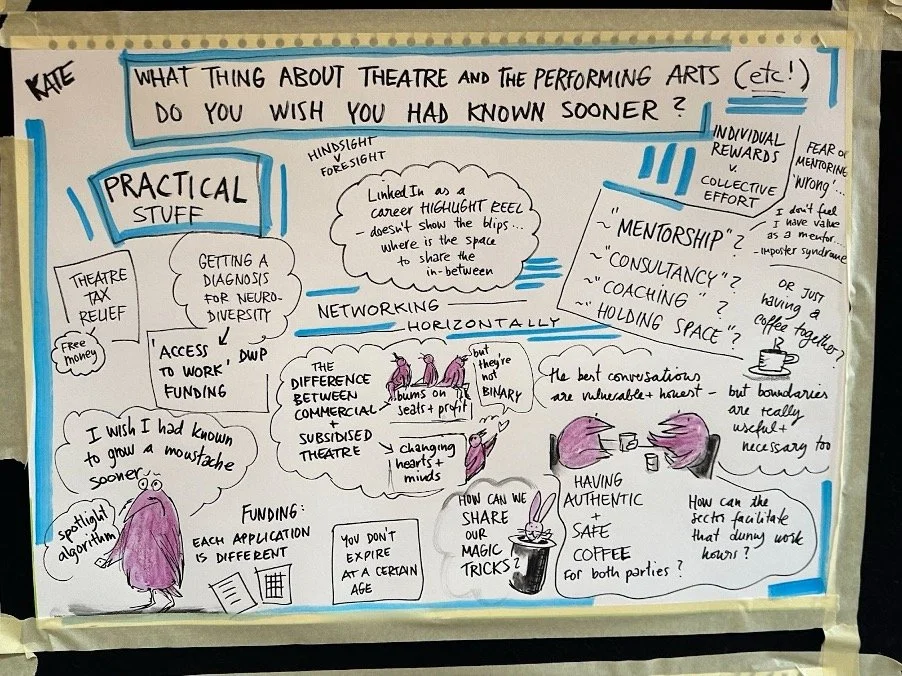 KATE
WHAT THING ABOUT THEATRE AND THE PERFORMING ARTS (etc!)
DO YOU WISH YOU HAD KNOWN SOONER?
PRACTICAL
STUFF
HINDSIGHT
V
FORESIGHT
LinkedIn as a
career HIGHLIGHT REEL
– doesn't show the blips...
where is the space
to share the
in-between
INDIVIDUAL
REWARDS
V.
COLLECTIVE
EFFORT
FEAR OF
MENTORING
'WRONG'...
I don't feel
I have value
as a mentor...
– IMPOSTER SYNDROME
~"MENTORSHIP"?
~"CONSULTANCY"?
~"COACHING"?
~"HOLDING SPACE"?
OR JUST
having a
coffee together?
THEATRE
TAX
RELIEF
Free
money
GETTING A
DIAGNOSIS
FOR NEURO-
DIVERSITY
'ACCESS
TO WORK' DWP
FUNDING
NETWORKING
HORIZONTALLY
THE
DIFFERENCE
BETWEEN
COMMERCIAL
+
SUBSIDISED
THEATRE
bums on
seats + profit
changing
hearts +
minds
but
they're
not
BINARY
the best conversations
are vulnerable + honest –
but boundaries
are really
useful +
necessary too
I wish I had known
to grow a moustache
sooner
spotlight
algorithm
FUNDING:
EACH APPLICATION
IS DIFFERENT
YOU DON'T
EXPIRE
AT A CERTAIN
AGE
HOW CAN WE
SHARE
OUR
MAGIC
TRICKS?
HAVING
AUTHENTIC
+
SAFE
COFFEE
for both parties?
How can the
sector facilitate
that during work
hours?